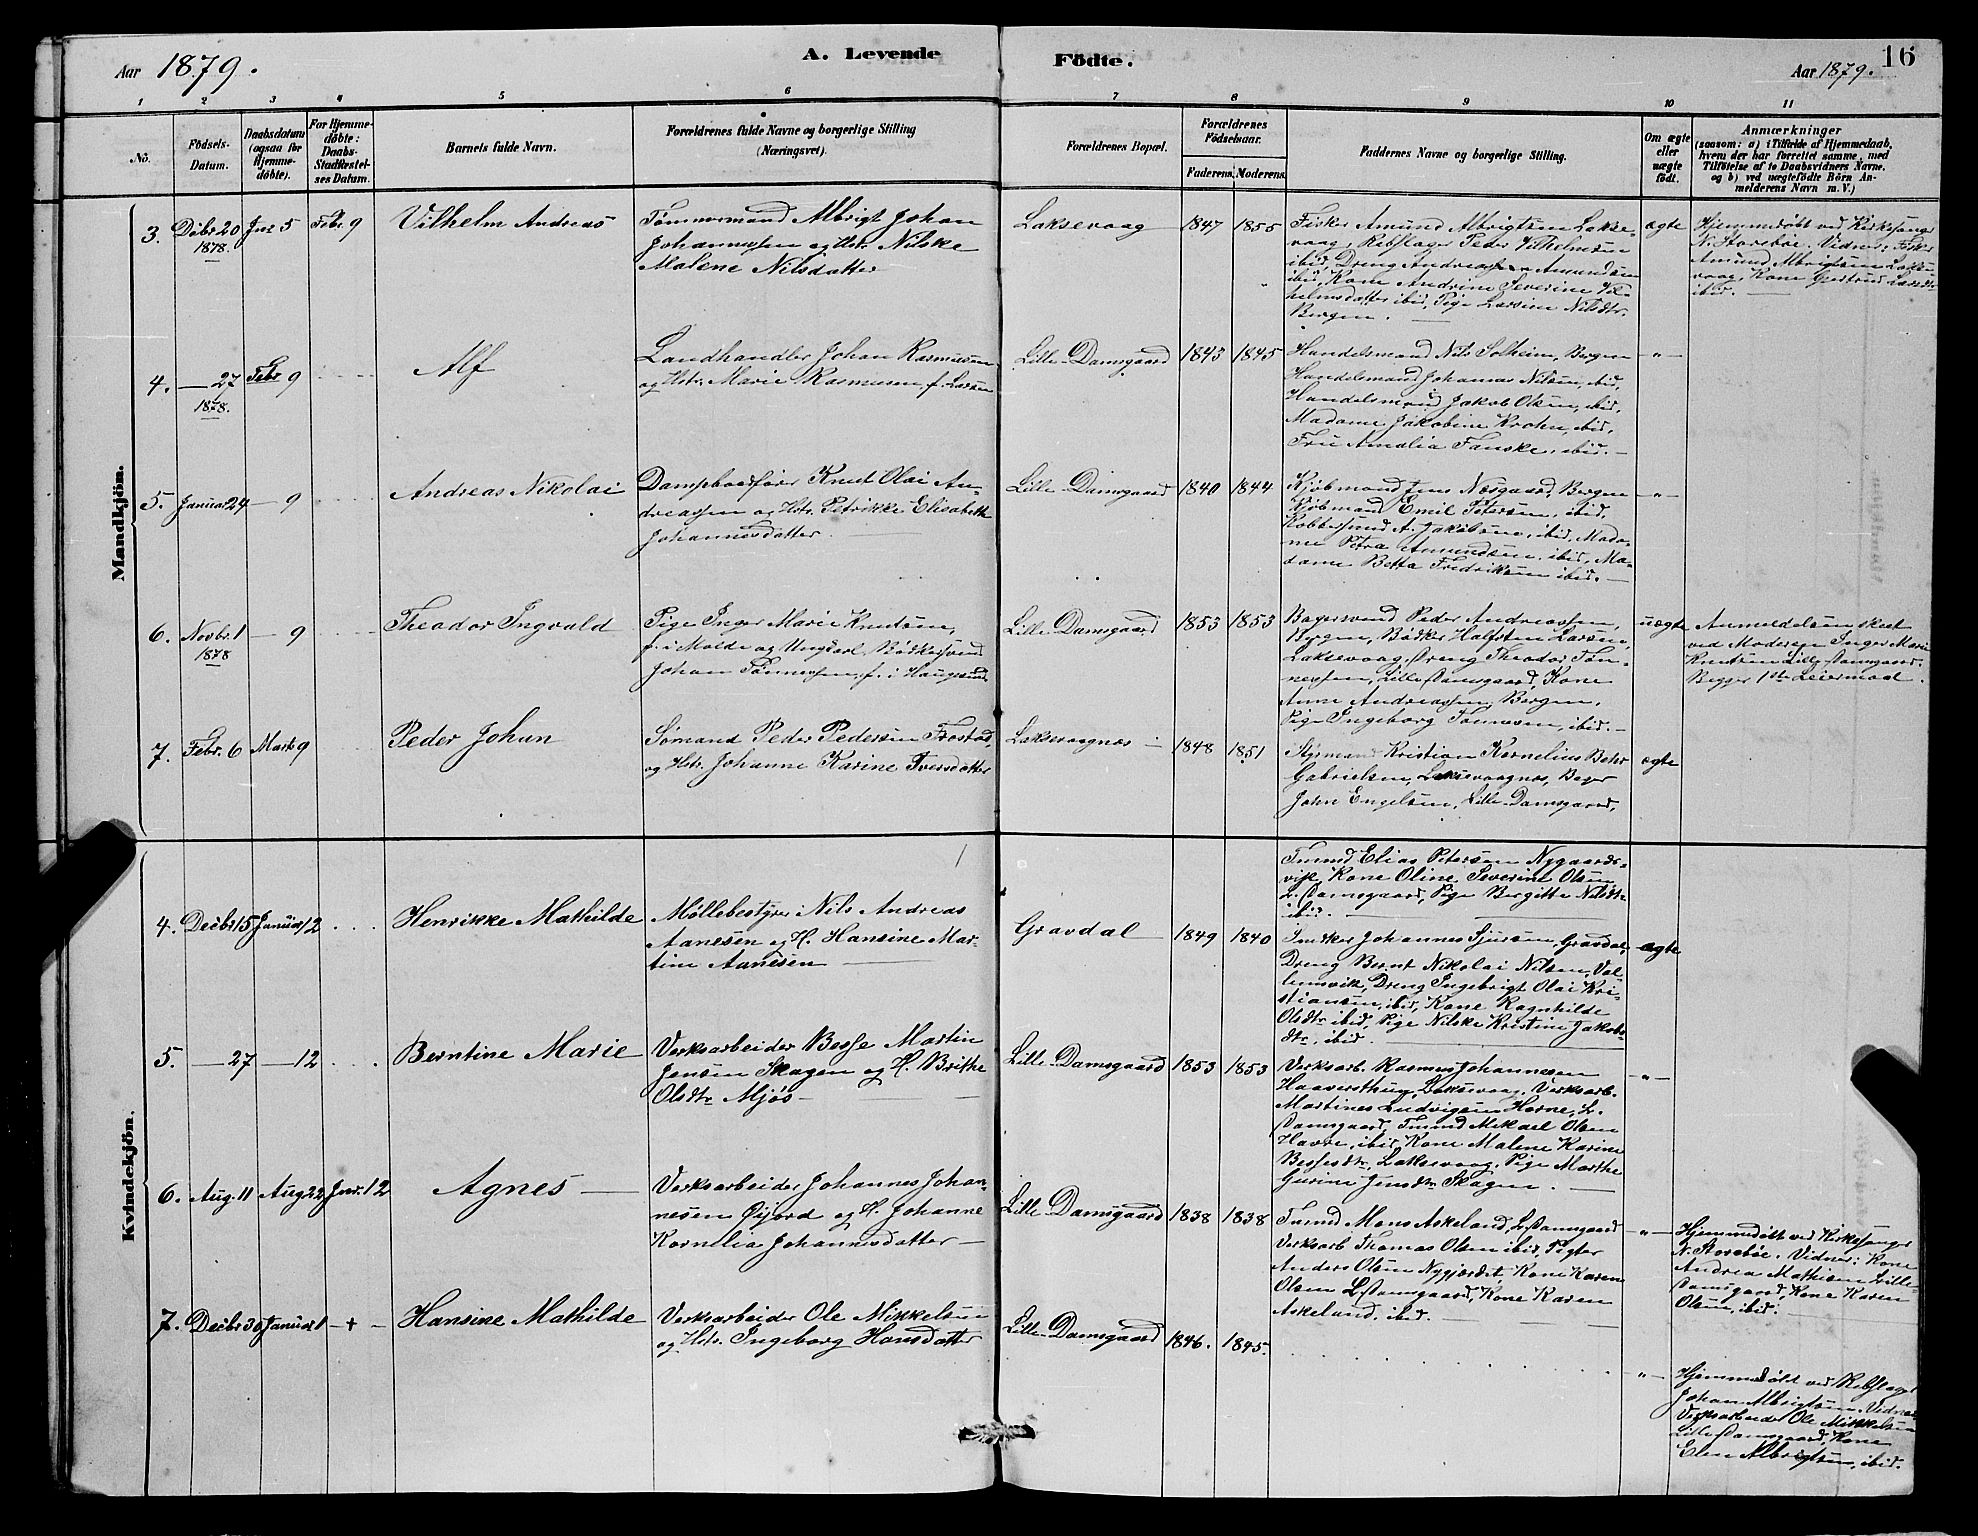 Aar 1879.
A. Levende
Födte.
Aar 1879.
16
1 2 3 4 5 6 7 8 9 10 11
No.
Födsels-
Datum.
Daabsdatum
(ogsaa for
Hjemme-
döbte).
For Hjemme-
döbte:
Daabs-
Stadfæstel-
ses Datum.
Barnets fulde Navn.
Forældrenes fulde Navne og borgerlige Stilling
(Næringsvei).
Forældrenes Bopæl.
Forældrenes
Födselsaar.
Faderens. Moderens.
Faddernes Navne og borgerlige Stilling.
Om ægte
eller
uægte
födt.
Anmærkninger
(saasom: a) i Tilfælde af Hjemmedaab,
hvem der har forrettet samme, med
Tilföielse af to Daabsvidners Navne,
og b) ved uægtefödte Börn An-
melderens Navn m. V.)
Mandkjön.
3. Debr 20 Jnr 5 Febr 9
1878.
Vilhelm Andreas
Tømmermand Albrigt Johan
Johannessen og Hstr. Nilske
Malene Nilsdatter
Laksevaag
1847 1855
Fisker Amund Albrigtsen Lakse-
vaag, Rebslager Peder Vilhelmsen
ibid, Dreng Andreas Amundsen
ibid, Kone Andrine Severine Vil-
helmsdatter ibid, Pige Larsine Nilsdtr.
Bergen.
ægte
Hjemmedøbt ved Kirkesanger
N. Storebøe. Vidner: Fisker
Amund Albrigtsen Lakse-
vaag, Kone Gjertrud Larsdtr
ibid.
4. — 27 Febr 9
1878.
Alf
Landhandler Johan Rasmussen
og Hstr. Marie Rasmussen f. Larsen
Lille Damsgaard
1843 1845
Handelsmand Nils Solheim, Bergen
Handelsmand Johannes Nilsen, ibid,
Handelsmand Jakob Olsen, ibid,
Madame Jakobine Krohn, ibid,
Fru Amalia Fanske, ibid.
— „ —
5. Januar 24 — 9
Andreas Nikolai
Dampboedfører Knut Olai An-
dreassen og Hstr. Petrikke Elisabeth
Johannesdatter.
Lille Damsgaard
1840 1844
Kjøbmand Jens Næsgaard, Bergen
Kjøbmand Emil Petersen, ibid,
A. Jakobsen, ibid, Mada-
me Petra Amundsen, ibid, Ma-
dame Betta Fredriksen ibid.
— „ —
6. Novbr. 1 — 9
1878
Theodor Ingvald
Pige Inger Marie Knudsen,
f. i Molde og Ungkarl, Bødkersvend
Johan Tønnessen, f. i Haugesund
Lille Damsgaard
1853 1853
Bagersvend Peder Andreassen,
Bergen, Bødker Halfsten Larsen,
Laksevaag, Dreng Theodor Tøn-
nessen, Lille Damsgaard, Kone
Anne Andreassen, Bergen,
Pige Ingeborg Tønnessen, ibid.
uægte
Anmeldelsen skeet
ved Moderen Inger Marie
Knutsen Lille Damsgaard.
Begges 1ste Leiermaal.
7. Febr. 6 Marts 9
Peder Johan
Sømand Peder Pedersen Frostad,
og Hstr. Johanne Karine Iversdatter
Laksevaagnæs
1848 1851
Styrmand Kristian Kornelius Behr
Gabrielsen, Laksevaagnæs, Bager
John Engelsen, Lille Damsgaard,
Tmmd Elias Petersen Nygaards-
vik, Kone Oline Severine Olsen
L. Damsgaard, Pige Bergitte Nilsdtr
ibid.
ægte
Kvindekjön.
4. Decbr 15 Januar 12
Henrikke Mathilde
Møllebestyrer Nils Andreas
Aanesen og H. Hansine Mar-
tine Aanesen
Gravdal
1849 1840
Johannes Sjursen, Gravdal,
Dreng Bernt Nikolai Nilsen, Val-
lemsvik, Dreng Ingebrigt Olai Kri-
stiansen, ibid, Kone Ragnhilde
Olsdtr ibid, Pige Nilske Kristine Jakobs-
dtr, ibid.
ægte
5. — 27 — 12
Berntine Marie
Verksarbeider Besse Martin
Jensen Skagen og H. Brithe
Olsdtr Mjøs
Lille Damsgaard
1853 1853
Verksarb. Rasmus Johannesen
Haaversthun, Laksevaag, Verksarb.
Martines Ludvigsen Horne, L.
Damsgaard, Tmmd Mikael Olsen
Havre, ibid, Kone Malene Karine
Bessesdtr, Laksevaag, Pige Marthe
Gurine Jensdtr Skagen.
— „ —
6. Aug. 11 Aug 22 Jnr. 12
Agnes
Verksarbeider Johannes Johan-
nesen Øyjord og H. Johanne
Kornelia Johannesdatter
Lille Damsgaard
1838 1838
Tmmd Mons Askeland, L. Damsgaard
Verksarb Thomas Olsen ibid, Pigter
Anders Olsen Nygjerdet, Kone Karen
Olsen L. Damsgaard, Kone Karen
Askeland, ibid.
— „ —
Hjemmedøbt ved Kirkesanger
N. Storebøe. Vidner: Kone
Andrea Mathisen Lille
Damsgaard, Kone Karen
Olsen, ibid.
7. Decbr 30 Januar 1 — + —
Hansine Mathilde
Verksarbeider Ole Mikkelsen
og Hstr. Ingeborg Hansdatter
Lille Damsgaard
1846. 1845.
— „ —
Hjemmedøbt ved Rebslager
Johan Albrigtsen. Vidner
Verksarbeider Ole Mikkelsen
Lille Damsgaard, Kone
Elen Albrigtsen, ibid.